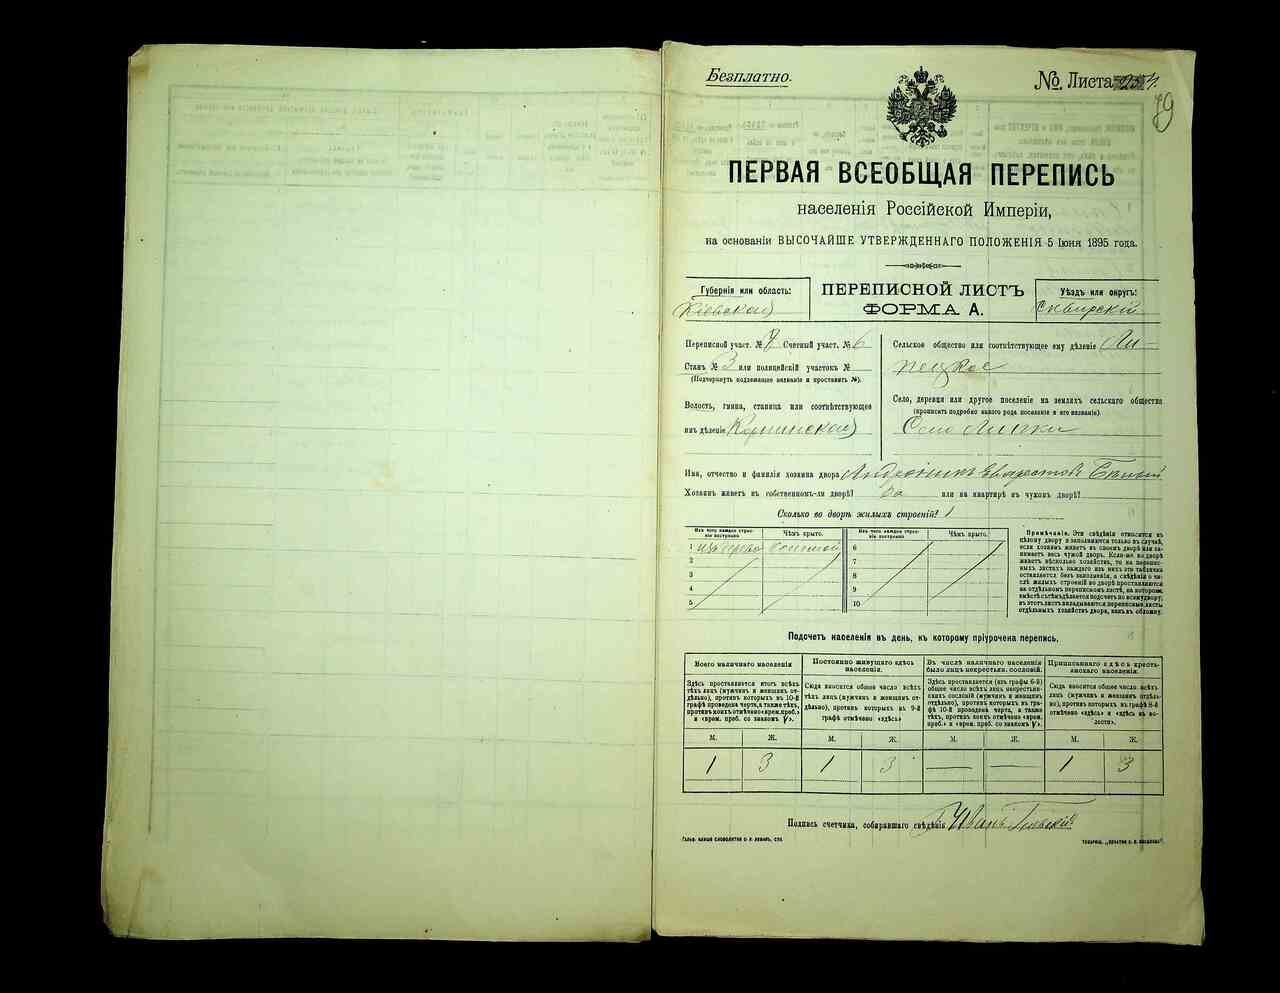 Безплатно.
№ Листа 254.
79
ПЕРВАЯ ВСЕОБЩАЯ ПЕРЕПИСЬ
населенія Россійской Имперіи,
на основаніи ВЫСОЧАЙШЕ УТВЕРЖДЕННАГО ПОЛОЖЕНІЯ 5 Іюня 1895 года.
Губернія или область:
Кіевская
ПЕРЕПИСНОЙ ЛИСТЪ
ФОРМА А.
Уѣздъ или округъ:
Сквирскій
Переписной участ. № 7 Счетный участ. № 6
Станъ № 3 или полицейскій участокъ №
(Подчеркнуть подлежащее названіе и проставить №).
Волость, гмина, станица или соотвѣтствующее
имъ дѣленіе Корнинская
Сельское общество или соотвѣтствующее ему дѣленіе Ли-
пецкое
Село, деревня или другое поселеніе на земляхъ сельскаго общества
(прописать подробно какого рода поселеніе и его названіе).
Село Липки
Имя, отчество и фамилія хозяина двора Андроникъ Еварестовъ
Хозяинъ живетъ въ собственномъ-ли дворѣ? да или на квартирѣ въ чужомъ дворѣ?
Сколько во дворѣ жилыхъ строеній? 1
Изъ чего каждое строе-
ніе построено
Чѣмъ крыто.
Изъ чего каждое строе-
ніе построено
Чѣмъ крыто.
1 изъ дерева соломой 6
2 7
3 8
4 9
5 10
Примѣчаніе. Эти свѣдѣнія относятся къ
цѣлому двору и заполняются только въ случаѣ,
если хозяинъ живетъ въ своемъ дворѣ или за-
нимаетъ весь чужой дворъ. Если-же во дворѣ
живетъ нѣсколько хозяйствъ, то на перепис-
ныхъ листахъ каждаго изъ нихъ эта табличка
оставляется безъ заполненія, а свѣдѣнія о чи-
слѣ жилыхъ строеній во дворѣ проставляются
на отдѣльномъ переписномъ листѣ, на которомъ
вмѣстѣ съ тѣмъ дѣлается подсчетъ по всему двору;
въ этотъ листъ вкладываются переписные листы
отдѣльныхъ хозяйствъ двора, какъ въ обложку.
Подсчетъ населенія въ день, къ которому пріурочена перепись.
Всего наличнаго населенія
Здѣсь проставляется итогъ всѣхъ
тѣхъ лицъ (мужчинъ и женщинъ от-
дѣльно), противъ которыхъ въ 10-й
графѣ проведена черта, а также тѣхъ,
противъ коихъ отмѣчено «врем. преб.»
и «врем. преб. со знакомъ V».
Постоянно живущаго здѣсь
населенія.
Сюда вносится общее число всѣхъ
тѣхъ лицъ (мужчинъ и женщинъ от-
дѣльно), противъ которыхъ въ 9-й
графѣ отмѣчено «здѣсь»
Въ числѣ наличнаго населенія
было лицъ некрестьян. сословій.
Здѣсь проставляется (изъ графы 6-й)
общее число всѣхъ лицъ некрестьян-
скихъ сословій (мужчинъ и женщинъ
отдѣльно), противъ которыхъ въ гра-
фѣ 10-й проведена черта, а также
тѣхъ, противъ коихъ отмѣчено «врем.
преб.» и «врем. преб. со знакомъ V».
Приписаннаго здѣсь кресть-
янскаго населенія.
Сюда вносится общее число всѣхъ
лицъ (мужчинъ и женщинъ отдѣль-
но), противъ которыхъ въ графѣ 8-й
отмѣчено «здѣсь» и «здѣсь въ во-
лости».
М. Ж. М. Ж. М. Ж. М. Ж.
1 3 1 3 — — 1 3
Подпись счетчика, собиравшаго свѣдѣнія Иванъ